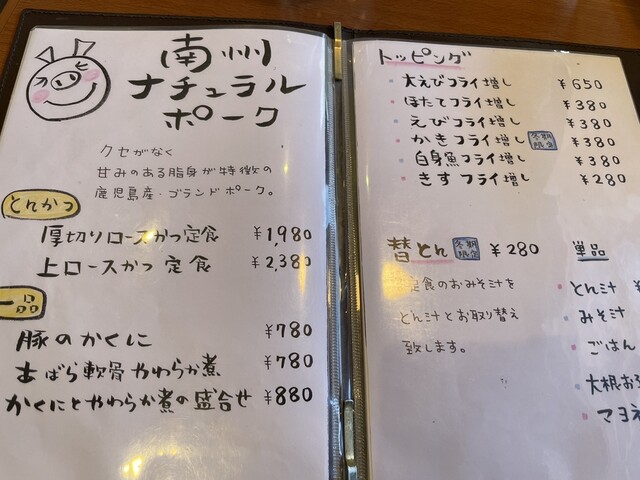 南州
ナチュラル
ポーク
クセがなく
甘みのある脂身が特徴の
鹿児島産・ブランドポーク。
とんかつ
厚切りロースかつ定食 ¥1,980
上ロースかつ定食 ¥2,380
一品
豚のかくに ¥780
本ばら軟骨やわらか煮 ¥780
かくにとやわらか煮の盛合せ ¥880
トッピング
大えびフライ増し ¥650
ほたてフライ増し ¥380
えびフライ増し ¥380
かきフライ増し 冬期限定 ¥380
白身魚フライ増し ¥380
きすフライ増し ¥280
替とん 冬期限定 ¥280
定食のおみそ汁を
とん汁とお取り替え
致します。
単品
とん汁 ¥
みそ汁
ごはん
大根お
マヨネ